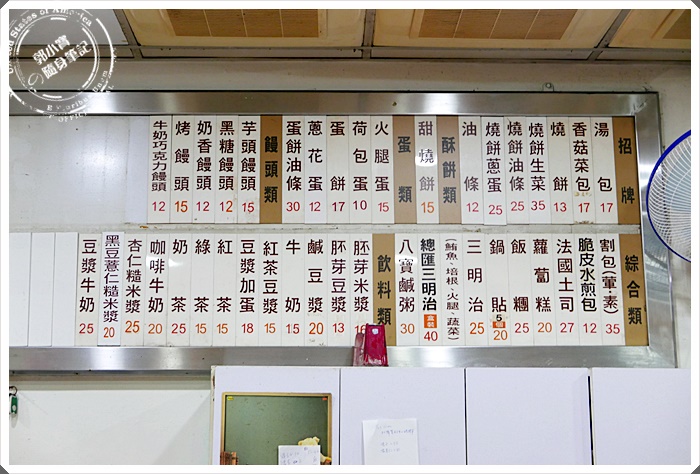 郭小寶
の隨身筆記
招牌
湯包 17
香菇菜包 17
餅 13
燒餅生菜 35
燒餅油條 25
燒餅蔥蛋 25
油條 12
酥餅類
甜燒餅 15
蛋類
火腿蛋 15
荷包蛋 10
蛋餅 17
蔥花蛋 12
蛋餅油條 30
饅頭類
芋頭饅頭 15
黑糖饅頭 12
奶香饅頭 12
烤饅頭 15
牛奶巧克力饅頭 12
綜合類
割包(葷、素) 35
脆皮水煎包 12
法國土司 27
蘿蔔糕 20
飯糰 25
鍋貼 5個 20
三明治 25
(鮪魚、培根、火腿、蔬菜)
總匯三明治 盒裝 40
八寶鹹粥 30
飲料類
胚芽米漿
胚芽豆漿 13
鹹豆漿 20
牛奶 15
紅茶豆漿 15
豆漿加蛋 18
紅茶 15
綠茶 15
奶茶 25
咖啡牛奶 20
杏仁糙米漿 25
黑豆薏仁糙米漿 20
豆漿牛奶 25